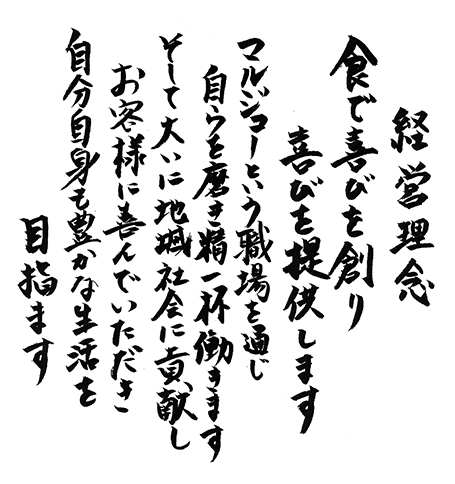 経営理念
食で喜びを創り
喜びを提供します
マルジョーという職場を通じ
自らを磨き精一杯働きます
そして大いに地域社会に貢献し
お客様に喜んでいただき
自分自身も豊かな生活を
目指ます